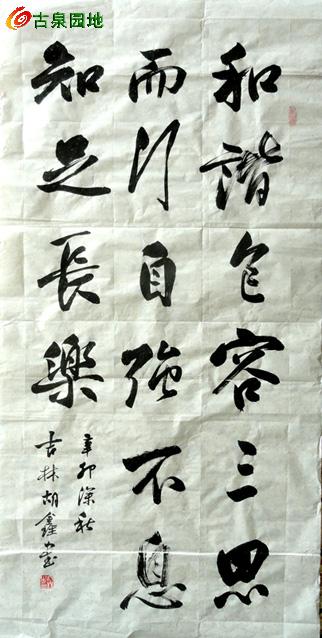 古泉园地
和諧包容三思
而行自強不息
知足長樂
辛卯深秋
吉林胡鑫书